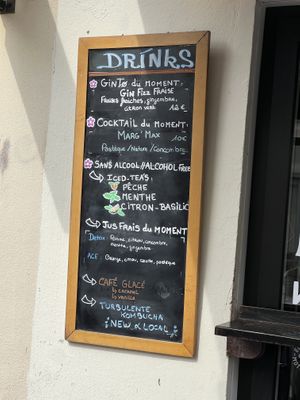 DRINKS
GINTO du MOMENT
GIN FIZZ FRAISE
Fraises fraîches, gingembre,
citron vert 12€
COCKTAIL du MOMENT
MARG'MAX 10€
Pastèque/Nature/Concombre
SANS ALCOOL//ALCOHOL FREE
ICED-TEAS
PÊCHE
MENTHE
CITRON-BASILIC
JUS FRAIS du MOMENT
Detox: Pomme, citron, concombre,
menthe, gingembre
ACE: Orange, citron, carotte, pastèque
CAFÉ GLACÉ
caramel
vanille
TURBULENTE
KOMBUCHA
NEW & LOCAL